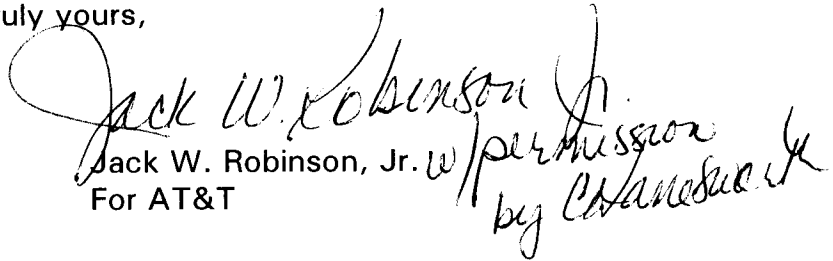 uly yours,
Jack W. Robinson Jr
Jack W. Robinson, Jr. w/permission
For AT&T
by